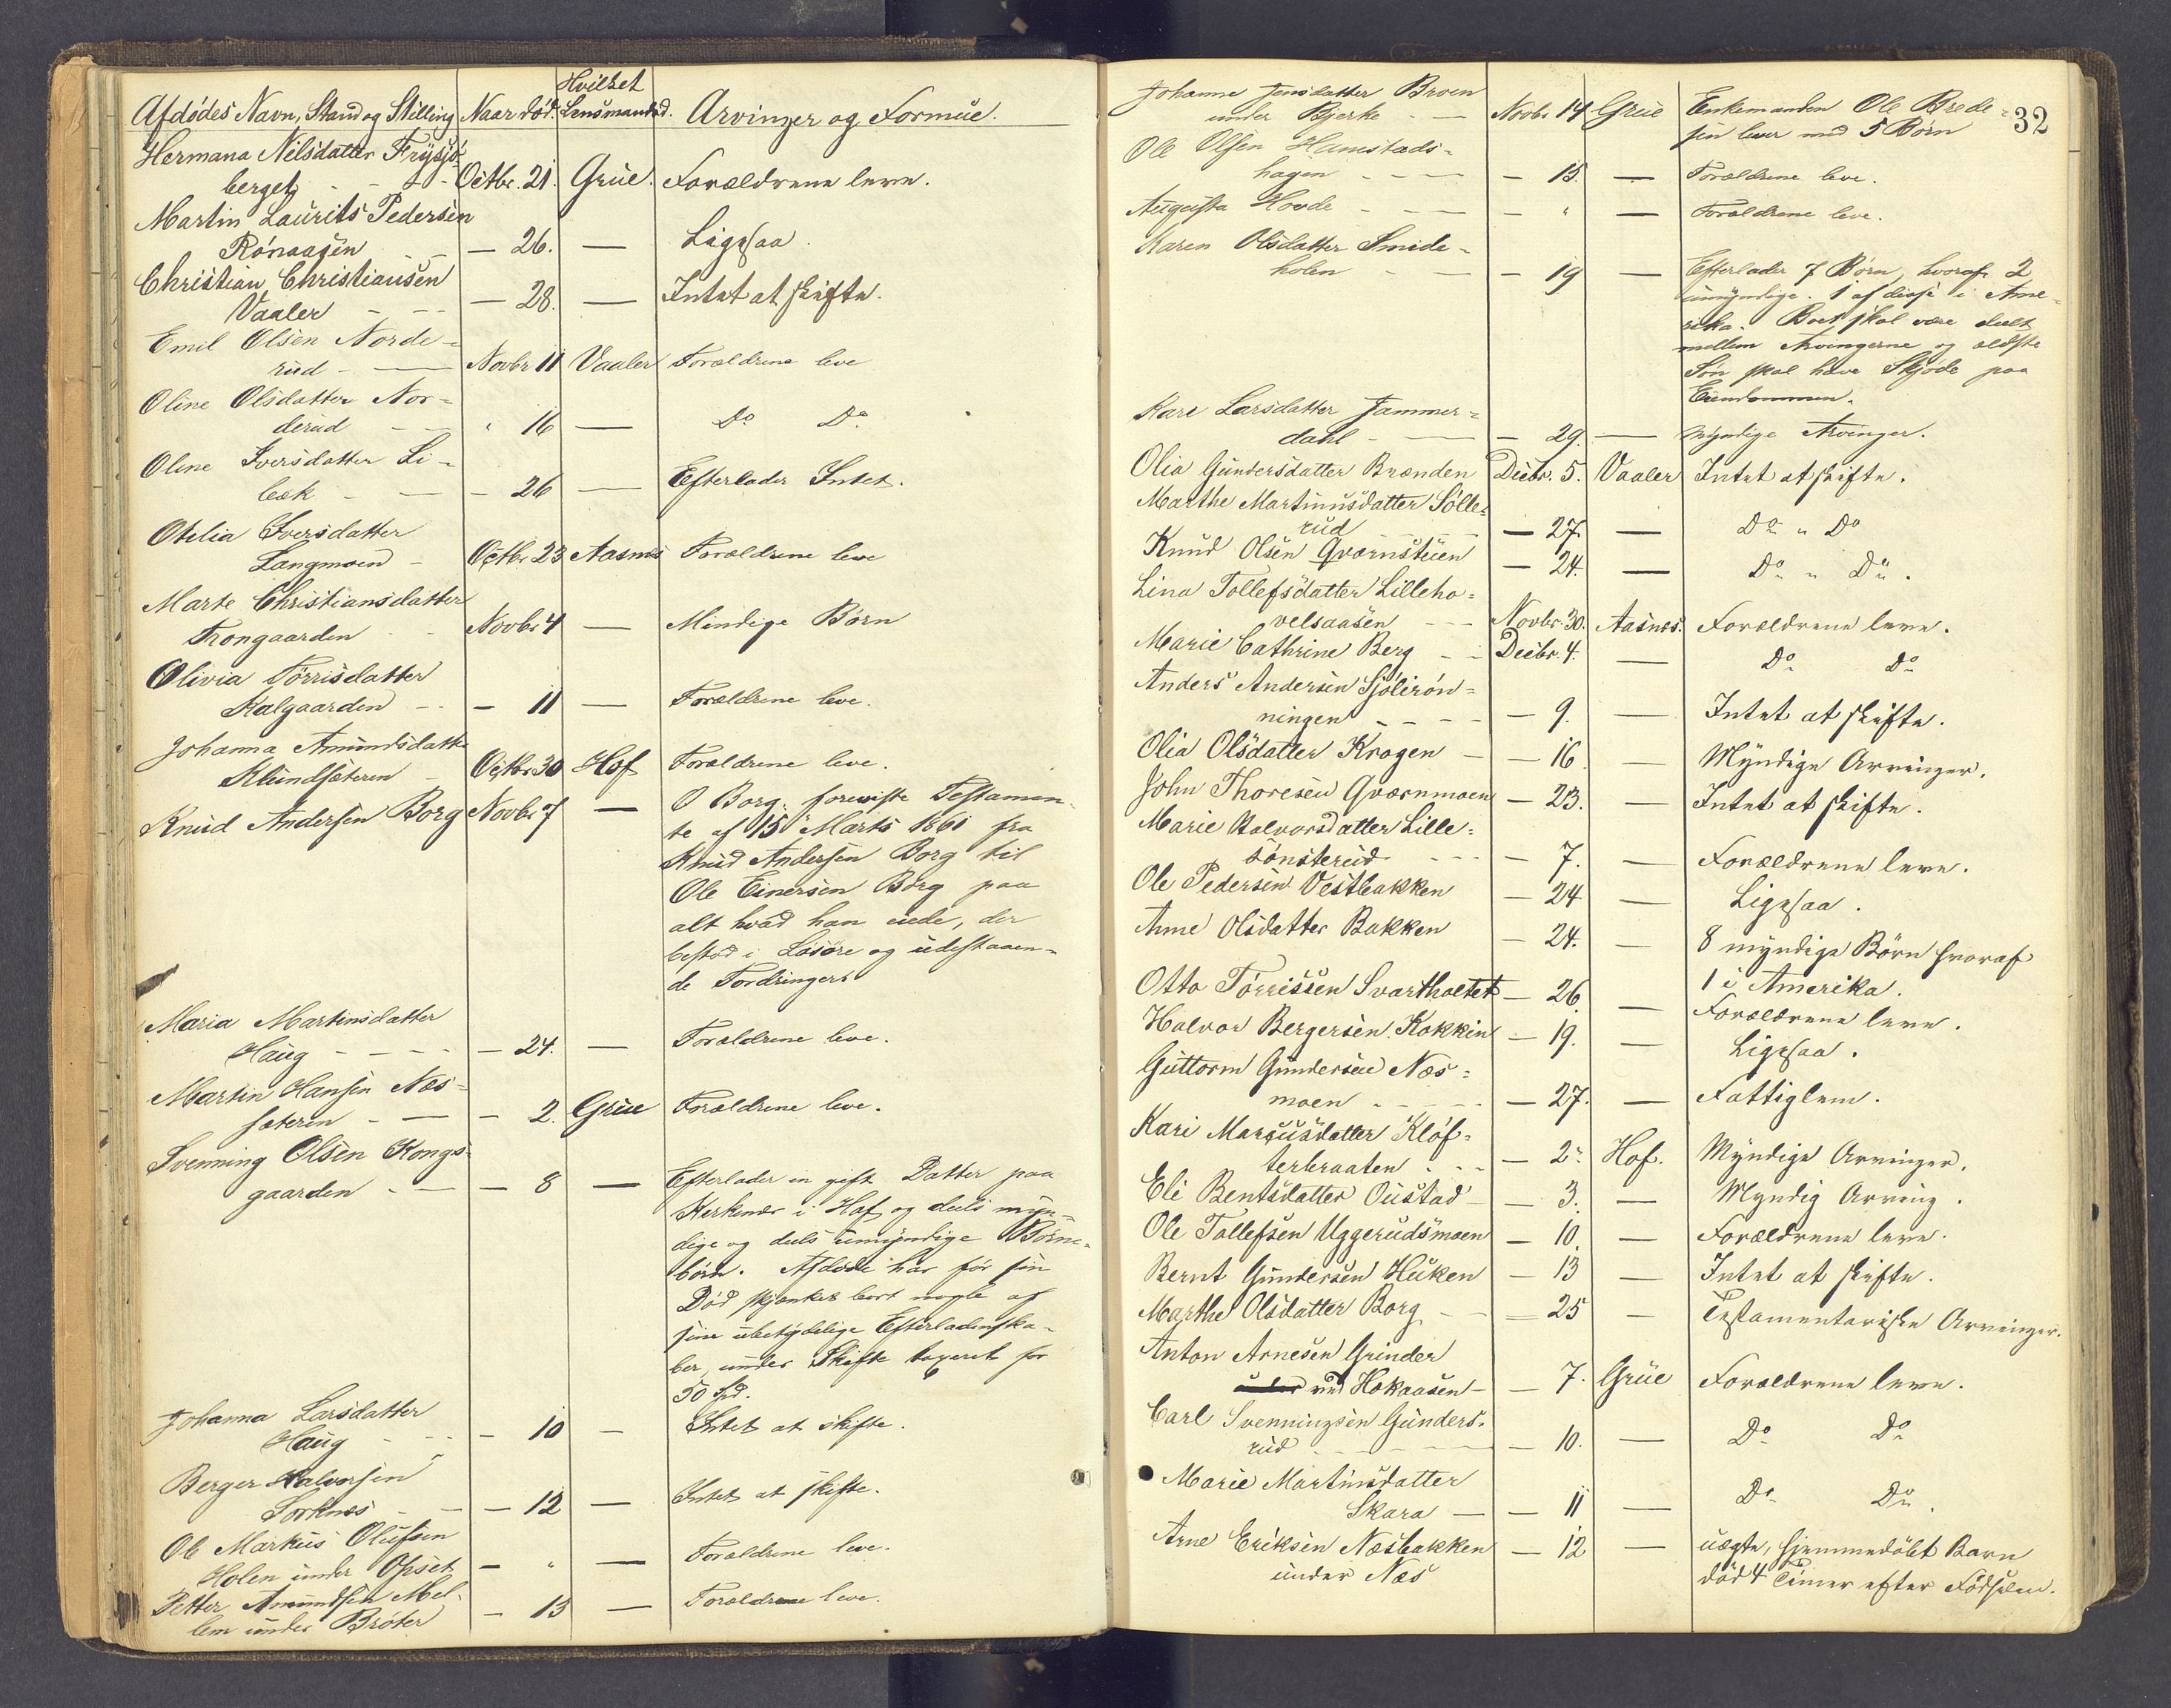 Afdødes Navn, Stand og Stilling Naar død. Hvilket Lensmandsd. Arvinger og Formue.
Hermana Nilsdatter Frysjø-
berget - - - Octbr. 21. Grue. Forældrene leve.
Martin Laurits Pedersen
Rønaasen - - — 26. — Ligesaa.
Christian Christiansen
Vaaler - - - — 28. — Intet at skifte.
Emil Olsen Norde-
rud - — Novbr 11 Vaaler Forældrene leve
Oline Olsdatter Nor-
derud - - „ 16 — Do Do
Oline Iversdatter Li-
bæk - - — - 26 — Efterlader Intet.
Otilia Iversdatter
Langmoen - Octbr 23 Aasnæs Forældrene leve
Marte Christiansdatter
Trongaarden - - Novbr 4 — Mindige Børn
Olivia Tørrisdatter
Kalgaarden - - — 11 — Forældrene leve.
Johanna Amundsdatter
Klundsæteren - Octbr 30 Hof Forældrene leve.
Knud Andersen Borg Novbr 7 — O Borg. foreviste Testamen-
te af 15 Marts 1861 fra
Knud Andersen Borg til
Ole Einersen Borg paa
alt hvad han eiede, der
bestod i Løsøre og udestaaen-
de Fordringer.
Maria Martinsdatter
Haug - - - - — 24. — Forældrene leve.
Martin Hansen Næs-
sæteren - — — 2. Grue Forældrene leve.
Svenning Olsen Kongs-
gaarden - — — 8 — Efterlader en gift Datter paa
Kirkenær i Hof og deels myn-
dige og deels umyndige Børne-
børn. Afdøde har før sin
Død skjænket bort nogle af
sine ubetydelige Efterladenska-
ber, under Skifte taxeret for
50 Spd.
Johanna Larsdatter
Haug - - - — 10 — Intet at skifte.
Berger Halvorsen
Sorknæs - — — 12 — Intet at skifte.
Ole Markus Olufsen
Holen under Opset — „ — Forældrene leve.
Petter Amundsen Mel-
lem under Brøter — 13 — Forældrene leve.
32
Johanne Jensdatter Broen
under Bjerke - — Novbr 14 Grue Enkemanden Ole Brede-
sen lever med 5 Børn
Ole Olsen Hamstads-
hagen - - - — — 15. — Forældrene leve.
Augusta Hovde - - — — „ — Forældrene leve.
Karen Olsdatter Smide-
holen - — — 19 — Efterlader 7 Børn, hvoraf 2
umyndige. 1 af disse i Ame-
rika. Boet skal være deelt
mellem Arvingerne og ældste
Søn skal have Skjøde paa
Eiendommen.
Kari Larsdatter Jammer-
dahl - — — 29. — Myndige Arvinger.
Olia Gundersdatter Brænden Decbr. 5. Vaaler Intet at skifte.
Marthe Martinusdatter Sølle-
rud - - - - — 27. — Do „ Do
Knud Olsen Qværnstuen — 24. — Do „ Do.
Lina Tollefsdatter Lilleho-
velsaasen - - - Novbr. 30. Aasnæs. Forældrene leve.
Marie Cathrine Berg - - Decbr. 4. — Do Do
Anders Andersen Sjølirøn-
ningen - - - - — 9. — Intet at skifte.
Olia Olsdatter Krogen — — 16. — Myndige Arvinger.
John Thoresen Qværnmoen — 23. — Intet at skifte.
Marie Halvorsdatter Lille-
sønsterud - - - — 7. — Forældrene leve.
Ole Pedersen Vestbakken — 24 — Ligesaa.
Anne Olsdatter Bakken — 24. — 8 myndige Børn hvoraf
1 i Amerika.
Otto Tørrissen Svartholtet — 26. — Forældrene leve.
Halvor Bergersen Kokkin — 19. — Ligesaa.
Guttorm Gundersen Næs-
moen - - - - — 27. — Fattiglem.
Kari Marcusdatter Kløf-
terbraaten - - - — 2. Hof. Myndige Arvinger.
Eli Bentsdatter Oustad — 3. — Myndig Arving.
Ole Tollefsen Uggerudsmoen — 10. — Forældrene leve.
Bernt Gundersen Huken — 13 — Intet at skifte.
Marthe Olsdatter Borg - — — 25 — Testamentariske Arvinger.
Anton Arnesen Grinder
under ved Hokaasen — — 7. Grue Forældrene leve.
Carl Svenningsen Gunders-
rud - - - — 10. — Do Do
Marie Martinsdatter
Skara — — 11 — Do Do.
Arne Eriksen Næsbakken — 12 — uægte, hjemmedøbt Barn
under Næs død 4 Timer efter Fødselen.